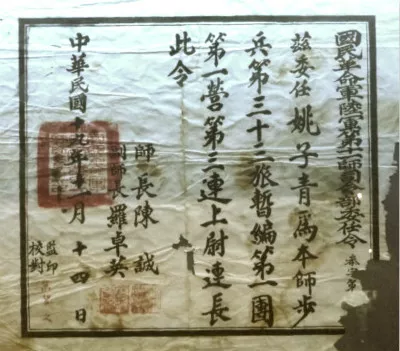 國民革命軍陸軍第十一師司令部委任令
茲委任姚子青爲本師步
兵第三十三旅暫編第一團
第一營第三連上尉連長
此令
師長陳誠
副師長羅卓英
中華民國十九年十一月十四日
監印
校對